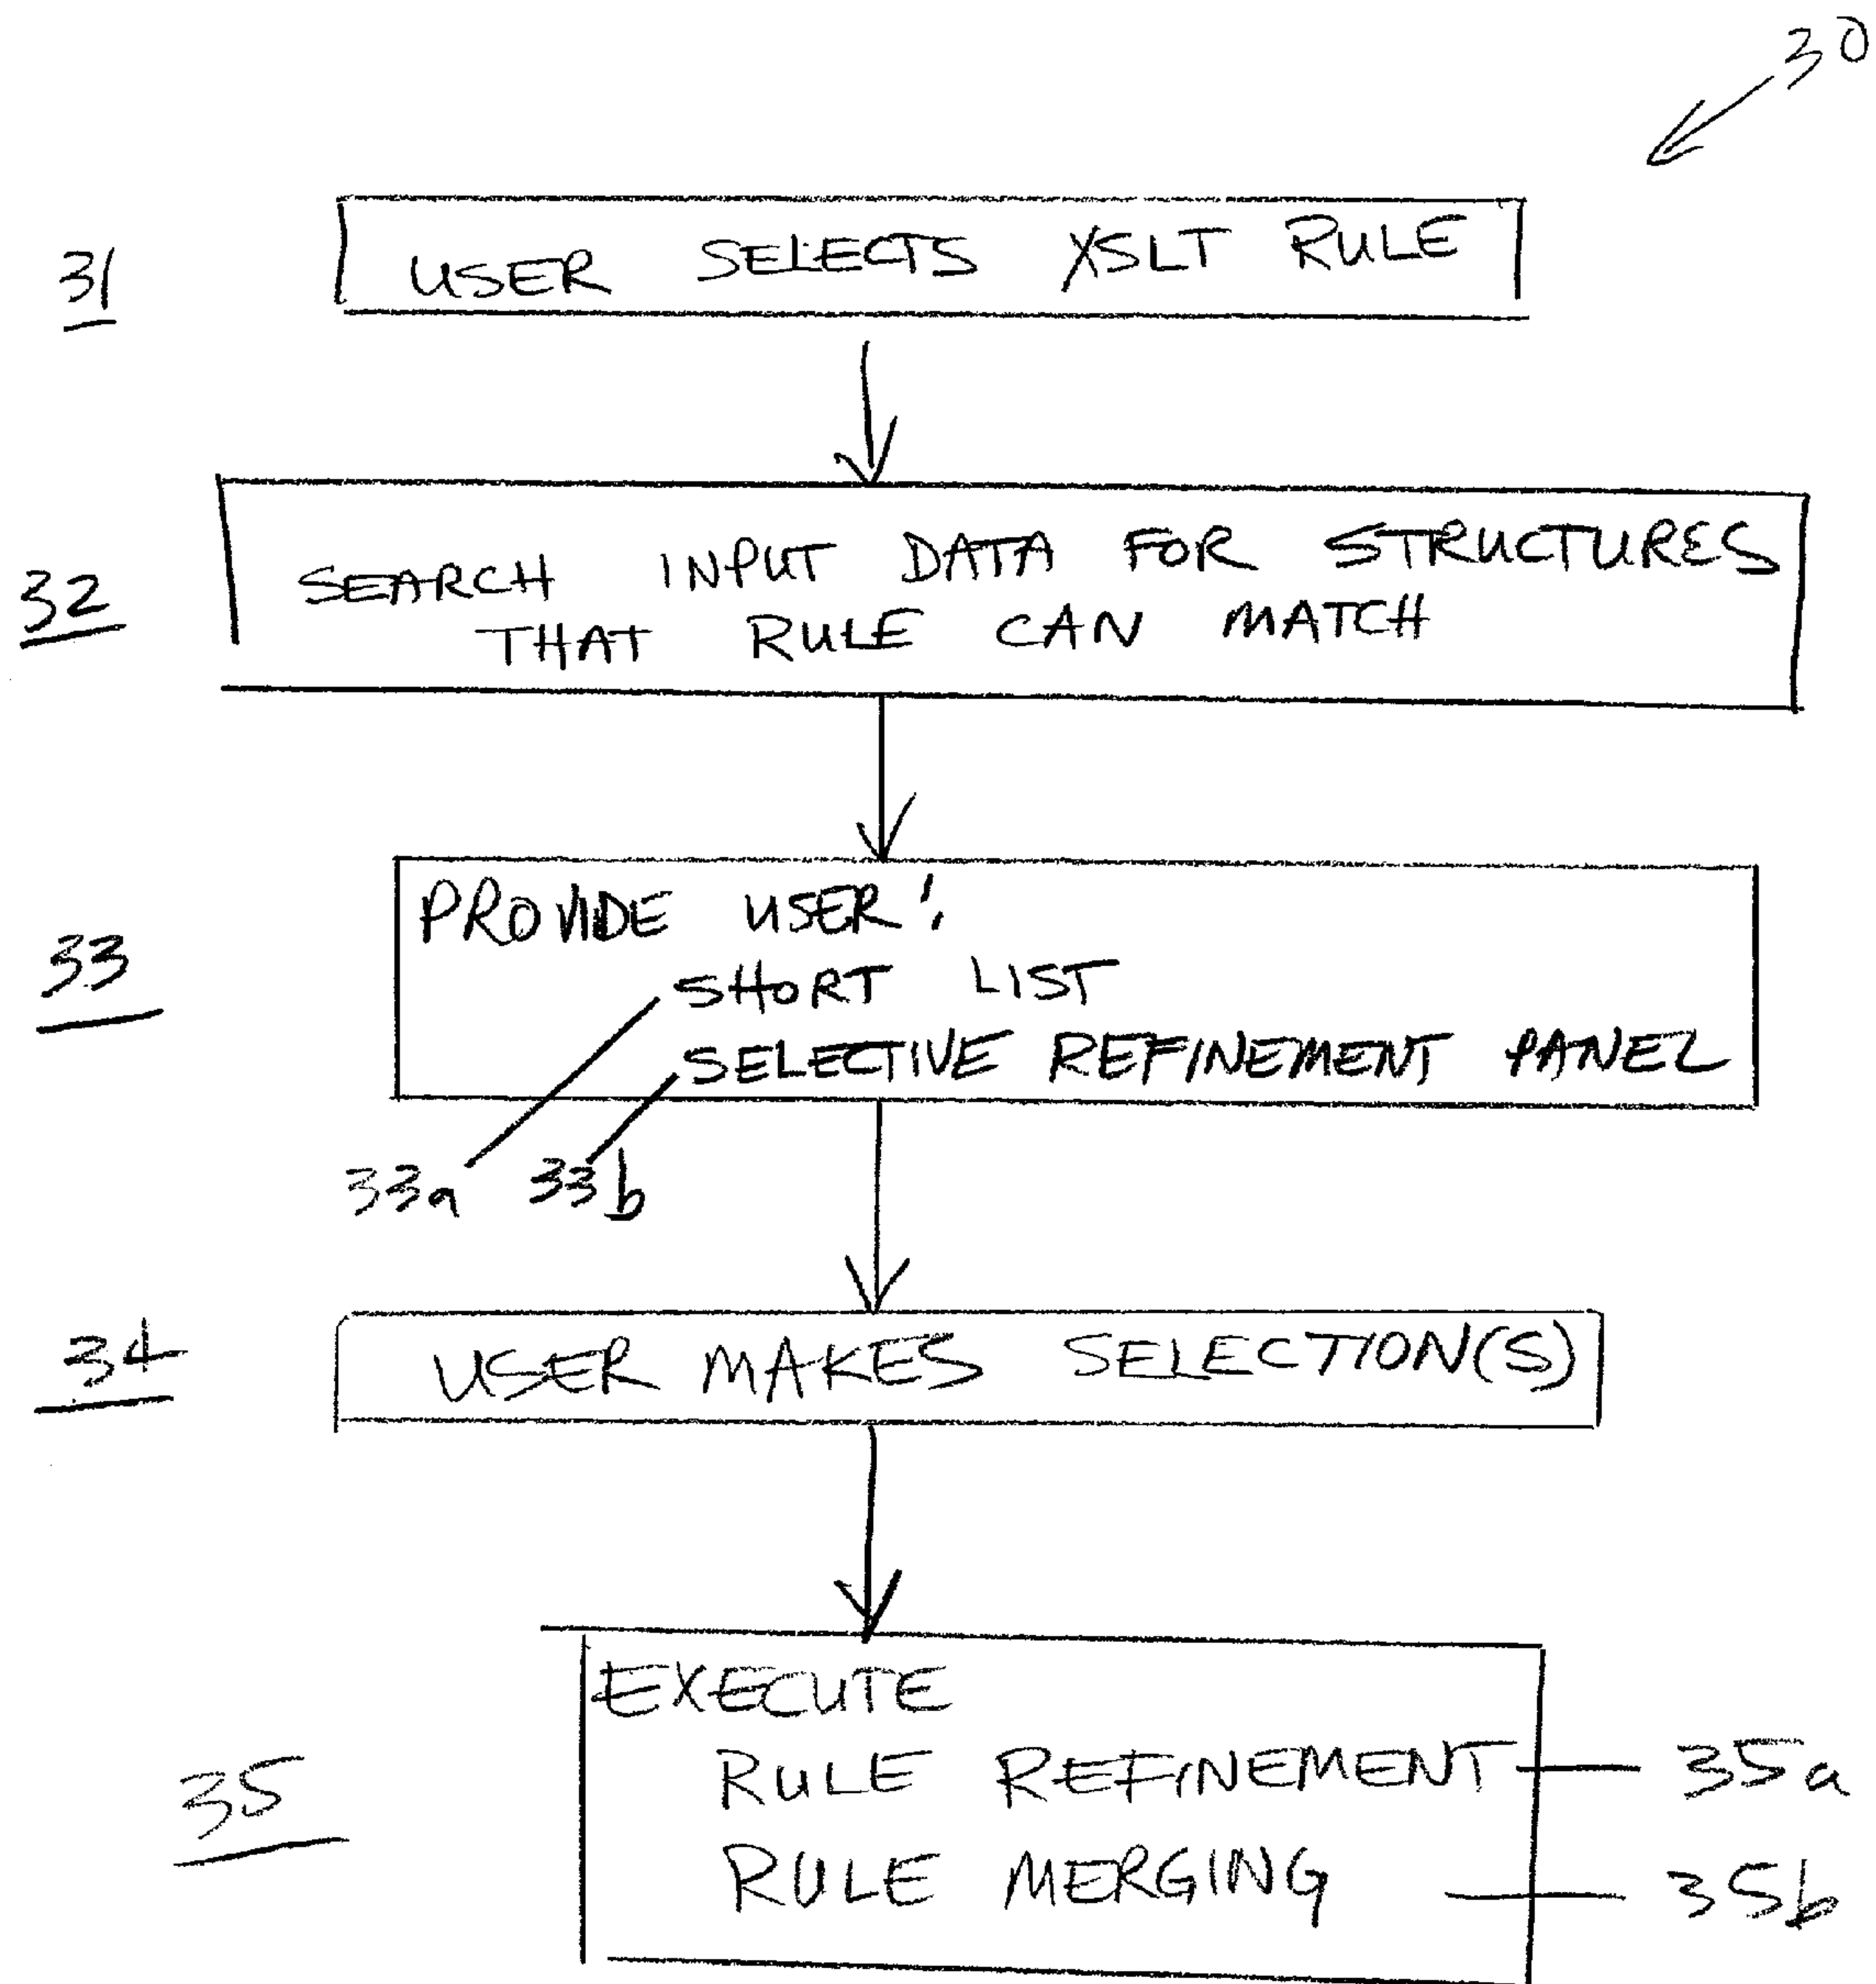 30
31
USER SELECTS XSLT RULE
32
SEARCH INPUT DATA FOR STRUCTURES
THAT RULE CAN MATCH
33
PROVIDE USER:
SHORT LIST
SELECTIVE REFINEMENT PANEL
33a 33b
34
USER MAKES SELECTION(S)
35
EXECUTE
RULE REFINEMENT 35a
RULE MERGING 35b